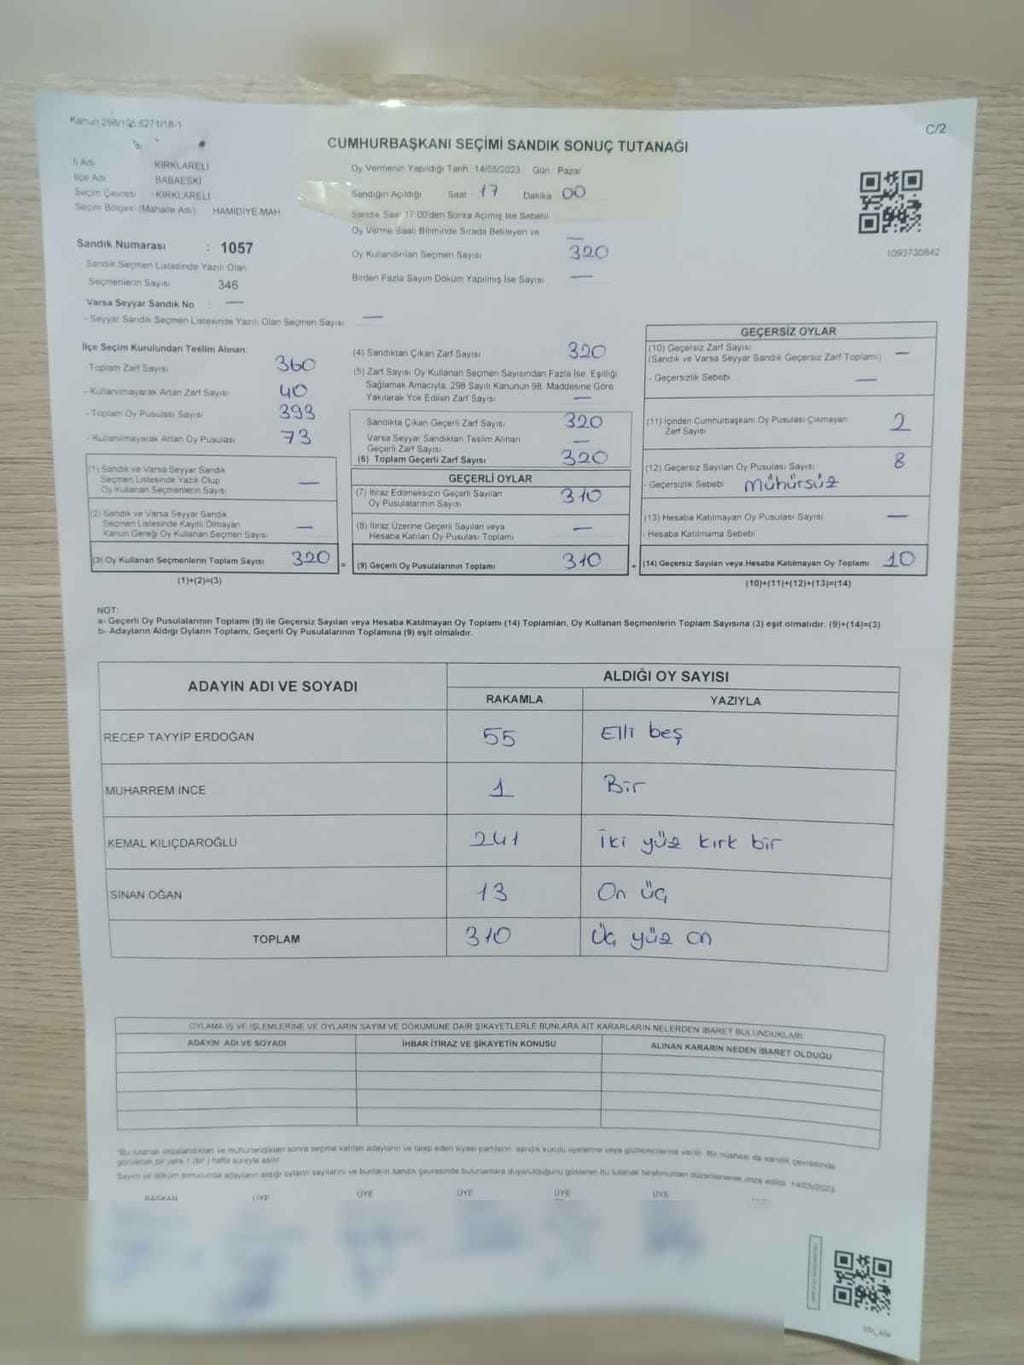 Kanun 298/105 6271/18-1
C/2
CUMHURBAŞKANI SEÇİMİ SANDIK SONUÇ TUTANAĞI
İl Adı KIRKLARELİ
İlçe Adı BABAESKİ
Seçim Çevresi : KIRKLARELİ
Seçim Bölgesi (Mahalle Adı) HAMİDİYE MAH
Oy Vermenin Yapıldığı Tarih 14/05/2023 Gün Pazar
Sandığın Açıldığı Saat 17 Dakika 00
Sandık Saat 17.00'den Sonra Açılmış İse Sebebi
Oy Verme Saati Bitiminde Sırada Bekleyen ve —
Oy Kullandırılan Seçmen Sayısı 320
Birden Fazla Sayım Döküm Yapılmış İse Sayısı —
1093730842
Sandık Numarası : 1057
Sandık Seçmen Listesinde Yazılı Olan
Seçmenlerin Sayısı 346
Varsa Seyyar Sandık No : —
- Seyyar Sandık Seçmen Listesinde Yazılı Olan Seçmen Sayısı —
İlçe Seçim Kurulundan Teslim Alınan:
Toplam Zarf Sayısı 360
- Kullanılmayarak Artan Zarf Sayısı 40
- Toplam Oy Pusulası Sayısı 393
- Kullanılmayarak Artan Oy Pusulası 73
(1) Sandık ve Varsa Seyyar Sandık
Seçmen Listesinde Yazılı Olup
Oy Kullanan Seçmenlerin Sayısı —
(2) Sandık ve Varsa Seyyar Sandık
Seçmen Listesinde Kayıtlı Olmayan
Kanun Gereği Oy Kullanan Seçmen Sayısı —
(3) Oy Kullanan Seçmenlerin Toplam Sayısı 320
(1)+(2)=(3)
(4) Sandıktan Çıkan Zarf Sayısı 320
(5) Zarf Sayısı Oy Kullanan Seçmen Sayısından Fazla İse, Eşitliği
Sağlamak Amacıyla, 298 Sayılı Kanunun 98. Maddesine Göre
Yakılarak Yok Edilen Zarf Sayısı —
Sandıkta Çıkan Geçerli Zarf Sayısı 320
Varsa Seyyar Sandıktan Teslim Alınan
Geçerli Zarf Sayısı —
(6) Toplam Geçerli Zarf Sayısı 320
GEÇERLİ OYLAR
(7) İtiraz Edilmeksizin Geçerli Sayılan
Oy Pusulalarının Sayısı 310
(8) İtiraz Üzerine Geçerli Sayılan veya
Hesaba Katılan Oy Pusulası Toplamı —
= (9) Geçerli Oy Pusulalarının Toplamı 310
GEÇERSİZ OYLAR
(10) Geçersiz Zarf Sayısı
(Sandık ve Varsa Seyyar Sandık Geçersiz Zarf Toplamı) —
- Geçersizlik Sebebi —
(11) İçinden Cumhurbaşkanı Oy Pusulası Çıkmayan
Zarf Sayısı 2
(12) Geçersiz Sayılan Oy Pusulası Sayısı 8
- Geçersizlik Sebebi Mühürsüz
(13) Hesaba Katılmayan Oy Pusulası Sayısı —
- Hesaba Katılmama Sebebi
+ (14) Geçersiz Sayılan veya Hesaba Katılmayan Oy Toplamı 10
(10)+(11)+(12)+(13)=(14)
NOT:
a- Geçerli Oy Pusulalarının Toplamı (9) ile Geçersiz Sayılan veya Hesaba Katılmayan Oy Toplamı (14) Toplamları, Oy Kullanan Seçmenlerin Toplam Sayısına (3) eşit olmalıdır. (9)+(14)=(3)
b- Adayların Aldığı Oyların Toplamı, Geçerli Oy Pusulalarının Toplamına (9) eşit olmalıdır.
ADAYIN ADI VE SOYADI
ALDIĞI OY SAYISI
RAKAMLA YAZIYLA
RECEP TAYYİP ERDOĞAN 55 Elli beş
MUHARREM İNCE 1 Bir
KEMAL KILIÇDAROĞLU 241 İki yüz kırk bir
SİNAN OĞAN 13 On üç
TOPLAM 310 Üç yüz on
OYLAMA İŞ VE İŞLEMLERİNE VE OYLARIN SAYIM VE DÖKÜMÜNE DAİR ŞİKAYETLERLE BUNLARA AİT KARARLARIN NELERDEN İBARET BULUNDUKLARI
ADAYIN ADI VE SOYADI İHBAR İTİRAZ VE ŞİKAYETİN KONUSU ALINAN KARARIN NEDEN İBARET OLDUĞU
BAŞKAN ÜYE ÜYE ÜYE ÜYE ÜYE